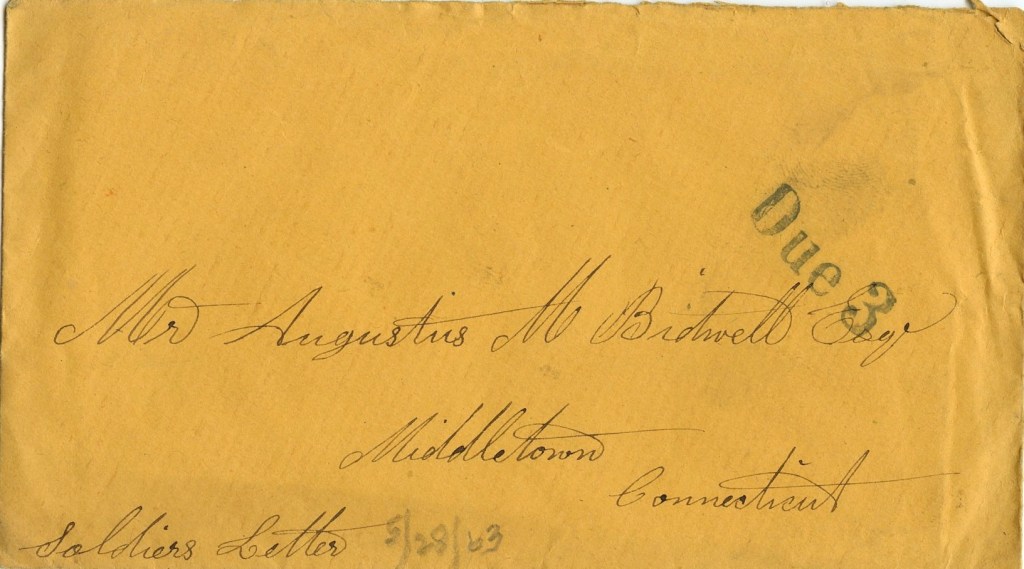 Due 3
Mr Augustus M Bidwell Esqr
Middletown
Connecticut
Soldiers Letter 5/28/63